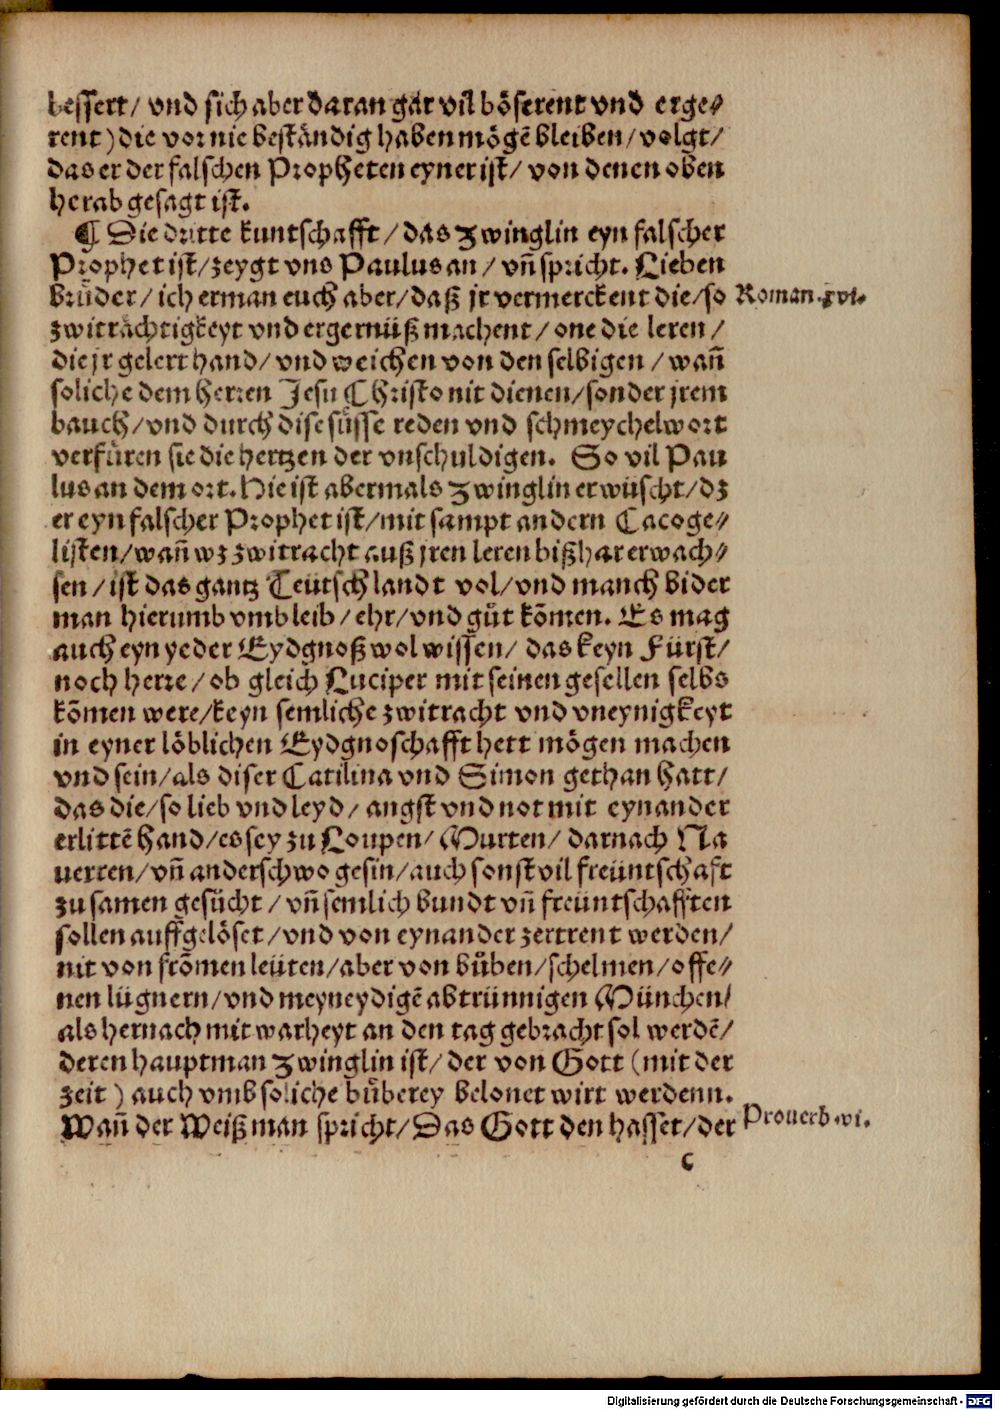 bessert/ vnd sich aber daran gar vil böserent vnd erge⸗
rent) die vor nie beständig haben mögē bleiben/ volgt/
das er der falschen Propheten eyner ist/ von denen oben
herab gesagt ist.
¶ Die dritte kuntschafft/ das Zwinglin eyn falscher
Prophet ist/ zeygt vns Paulus an/ vñ spricht. Lieben
brůder/ ich erman euch aber/ daß jr vermerckent die/ so
Roman. xvi.
zwiträchtigkeyt vnd ergernüß machent/ one die leren/
die jr gelert hand/ vnd weichen von den selbigen/ wañ
soliche dem herren Jesu Christo nit dienen/ sonder jrem
bauch/ vnd durch dise süsse reden vnd schmeychelwort
verfüren sie die hertzen der vnschuldigen. So vil Pau
lus an dem ort. Hie ist abermals Zwinglin erwüscht/ dz
er eyn falscher Prophet ist/ mit sampt andern Cacoge⸗
listen/ wañ wz zwitracht auß jren leren bißhar erwach⸗
sen/ ist das gantz Teütschlandt vol/ vnd manch bider
man hierumb vmb leib/ ehr/ vnd gůt kōmen. Es mag
auch eyn yeder Eydgnoß wol wissen/ das keyn Fürst/
noch herre/ ob gleich Luciper mit seinen gesellen selbs
kōmen were/ keyn semliche zwitracht vnd vneynigkeyt
in eyner löblichen Eydgnoschafft hett mögen machen
vnd sein/ als diser Catilina vnd Simon gethan hatt/
das die/ so lieb vnd leyd/ angst vnd not mit eynander
erlittē hand/ es sey zu Loupen/ Murten/ darnach Na
uerren/ vñ anderschwo gesin/ auch sonst vil freüntschaft
zu samen gesůcht/ vñ semlich bundt vñ freüntschafften
sollen auffgelöset/ vnd von eynander zertrent werden/
nit von frōmen leüten/ aber von bůben/ schelmen/ offe⸗
nen lügnern/ vnd meyneydigē abtrünnigen München/
als hernach mit warheyt an den tag gebracht sol werdē/
deren hauptman Zwinglin ist/ der von Gott (mit der
zeit) auch vmb soliche bůberey belonet wirt werdenn.
Wañ der Weißman spricht/ Das Gott den hasset/ der
Prouerb. vi.
c
Digitalisierung gefördert durch die Deutsche Forschungsgemeinschaft - DFG